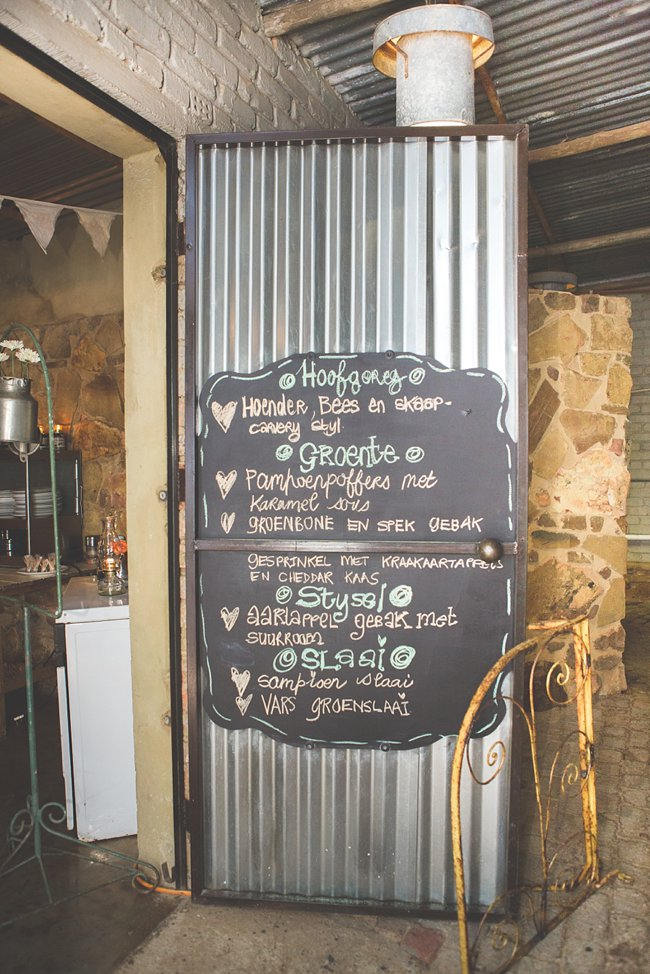 Hoofgereg
Hoender, Bees en skaap-
carvery styl
Groente
Pampoenpoffers met
Karamel sous
GROENBONE EN SPEK GEBAK
GESPRINKEL MET KRAAKAARTAPPELS
EN CHEDDAR KAAS
Stysel
AARTAPPEL GEBAK MET
SUURROOM
SLAAI
Sampioen slaai
VARS GROENSLAAI